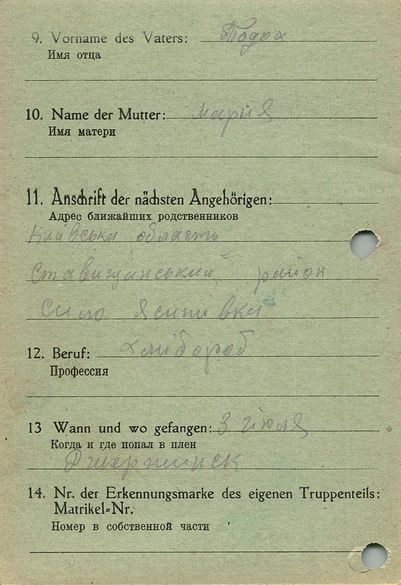 9. Vorname des Vaters: Тодох
Имя отца
10. Name der Mutter: Мария
Имя матери
11. Anschrift der nächsten Angehörigen:
Адрес ближайших родственников
Київська область
Ставищанський район
Село Ясинівка
12. Beruf: Хлібороб
Профессия
13 Wann und wo gefangen: 3 июля
Когда и где попал в плен
14. Nr. der Erkennungsmarke des eigenen Truppenteils:
Matrikel-Nr.
Номер в собственной части